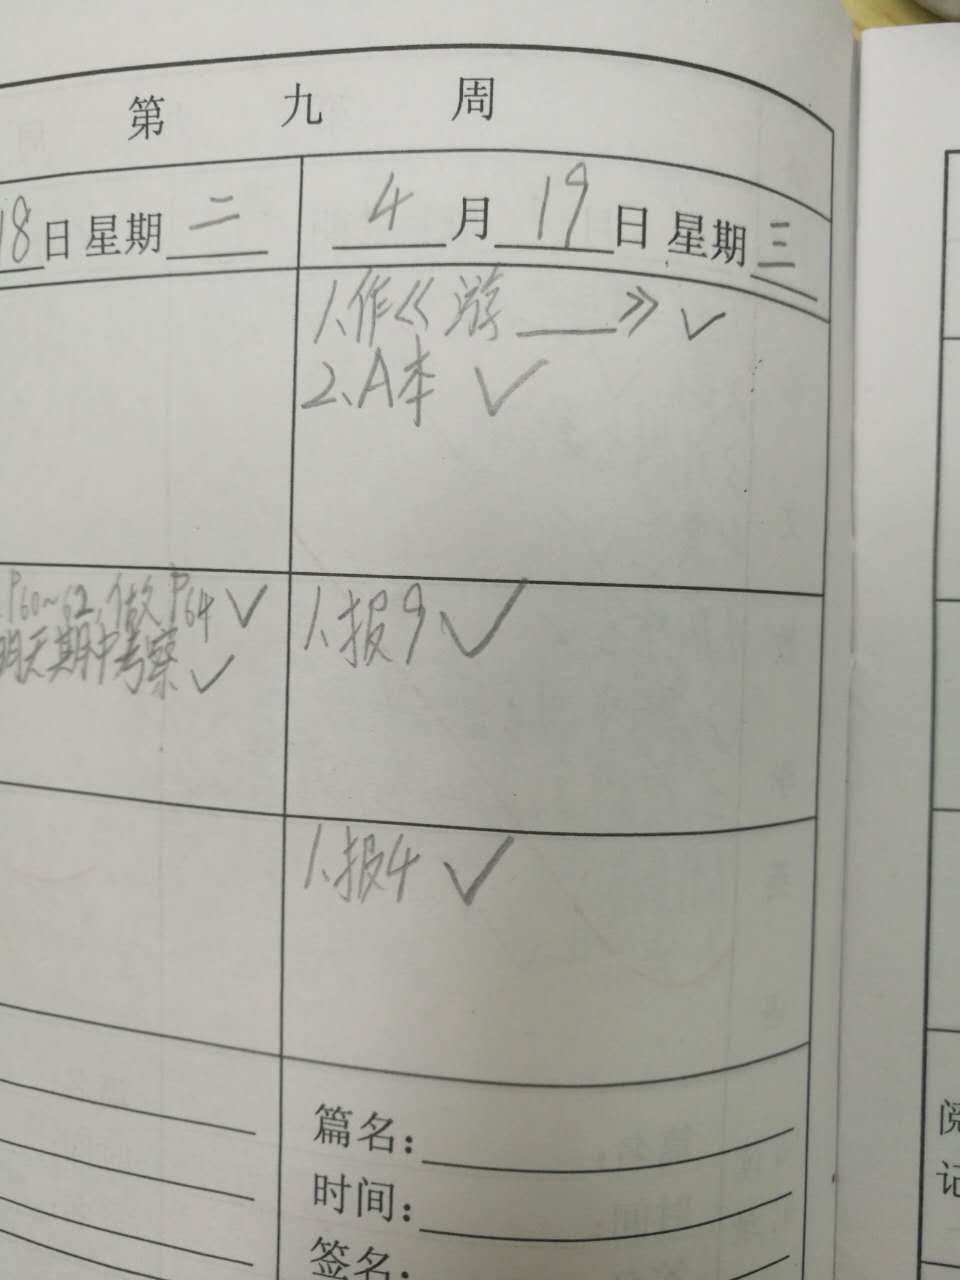 第 九 周
18日 星期 二
4月19日 星期三
1.作《游____》✓
2.A本 ✓
P60~62,做P64 ✓
明天期中考察 ✓
1.报9 ✓
1.报4 ✓
篇名：
时间：
签名：
阅
记